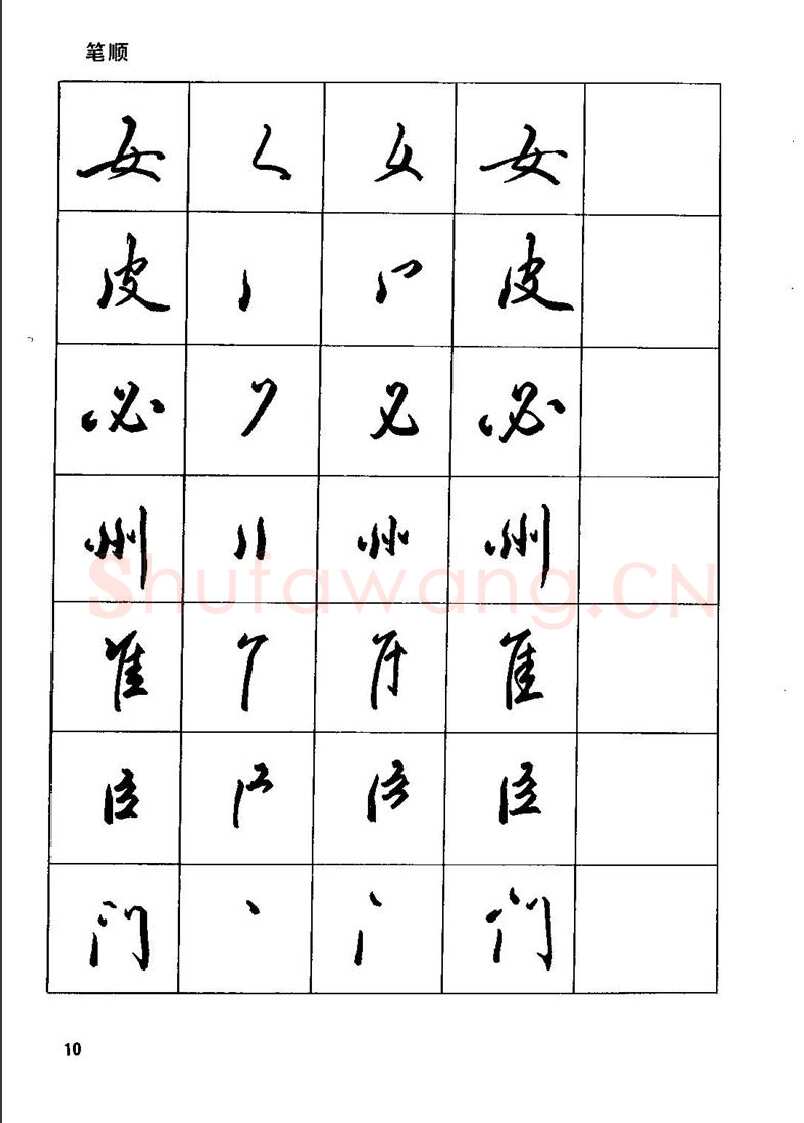 笔顺
女 𡿨 女 女
皮 丨 皮
必 必
州 州
隹 隹
臣 臣
门 丶 门
Shufawang.CN
10